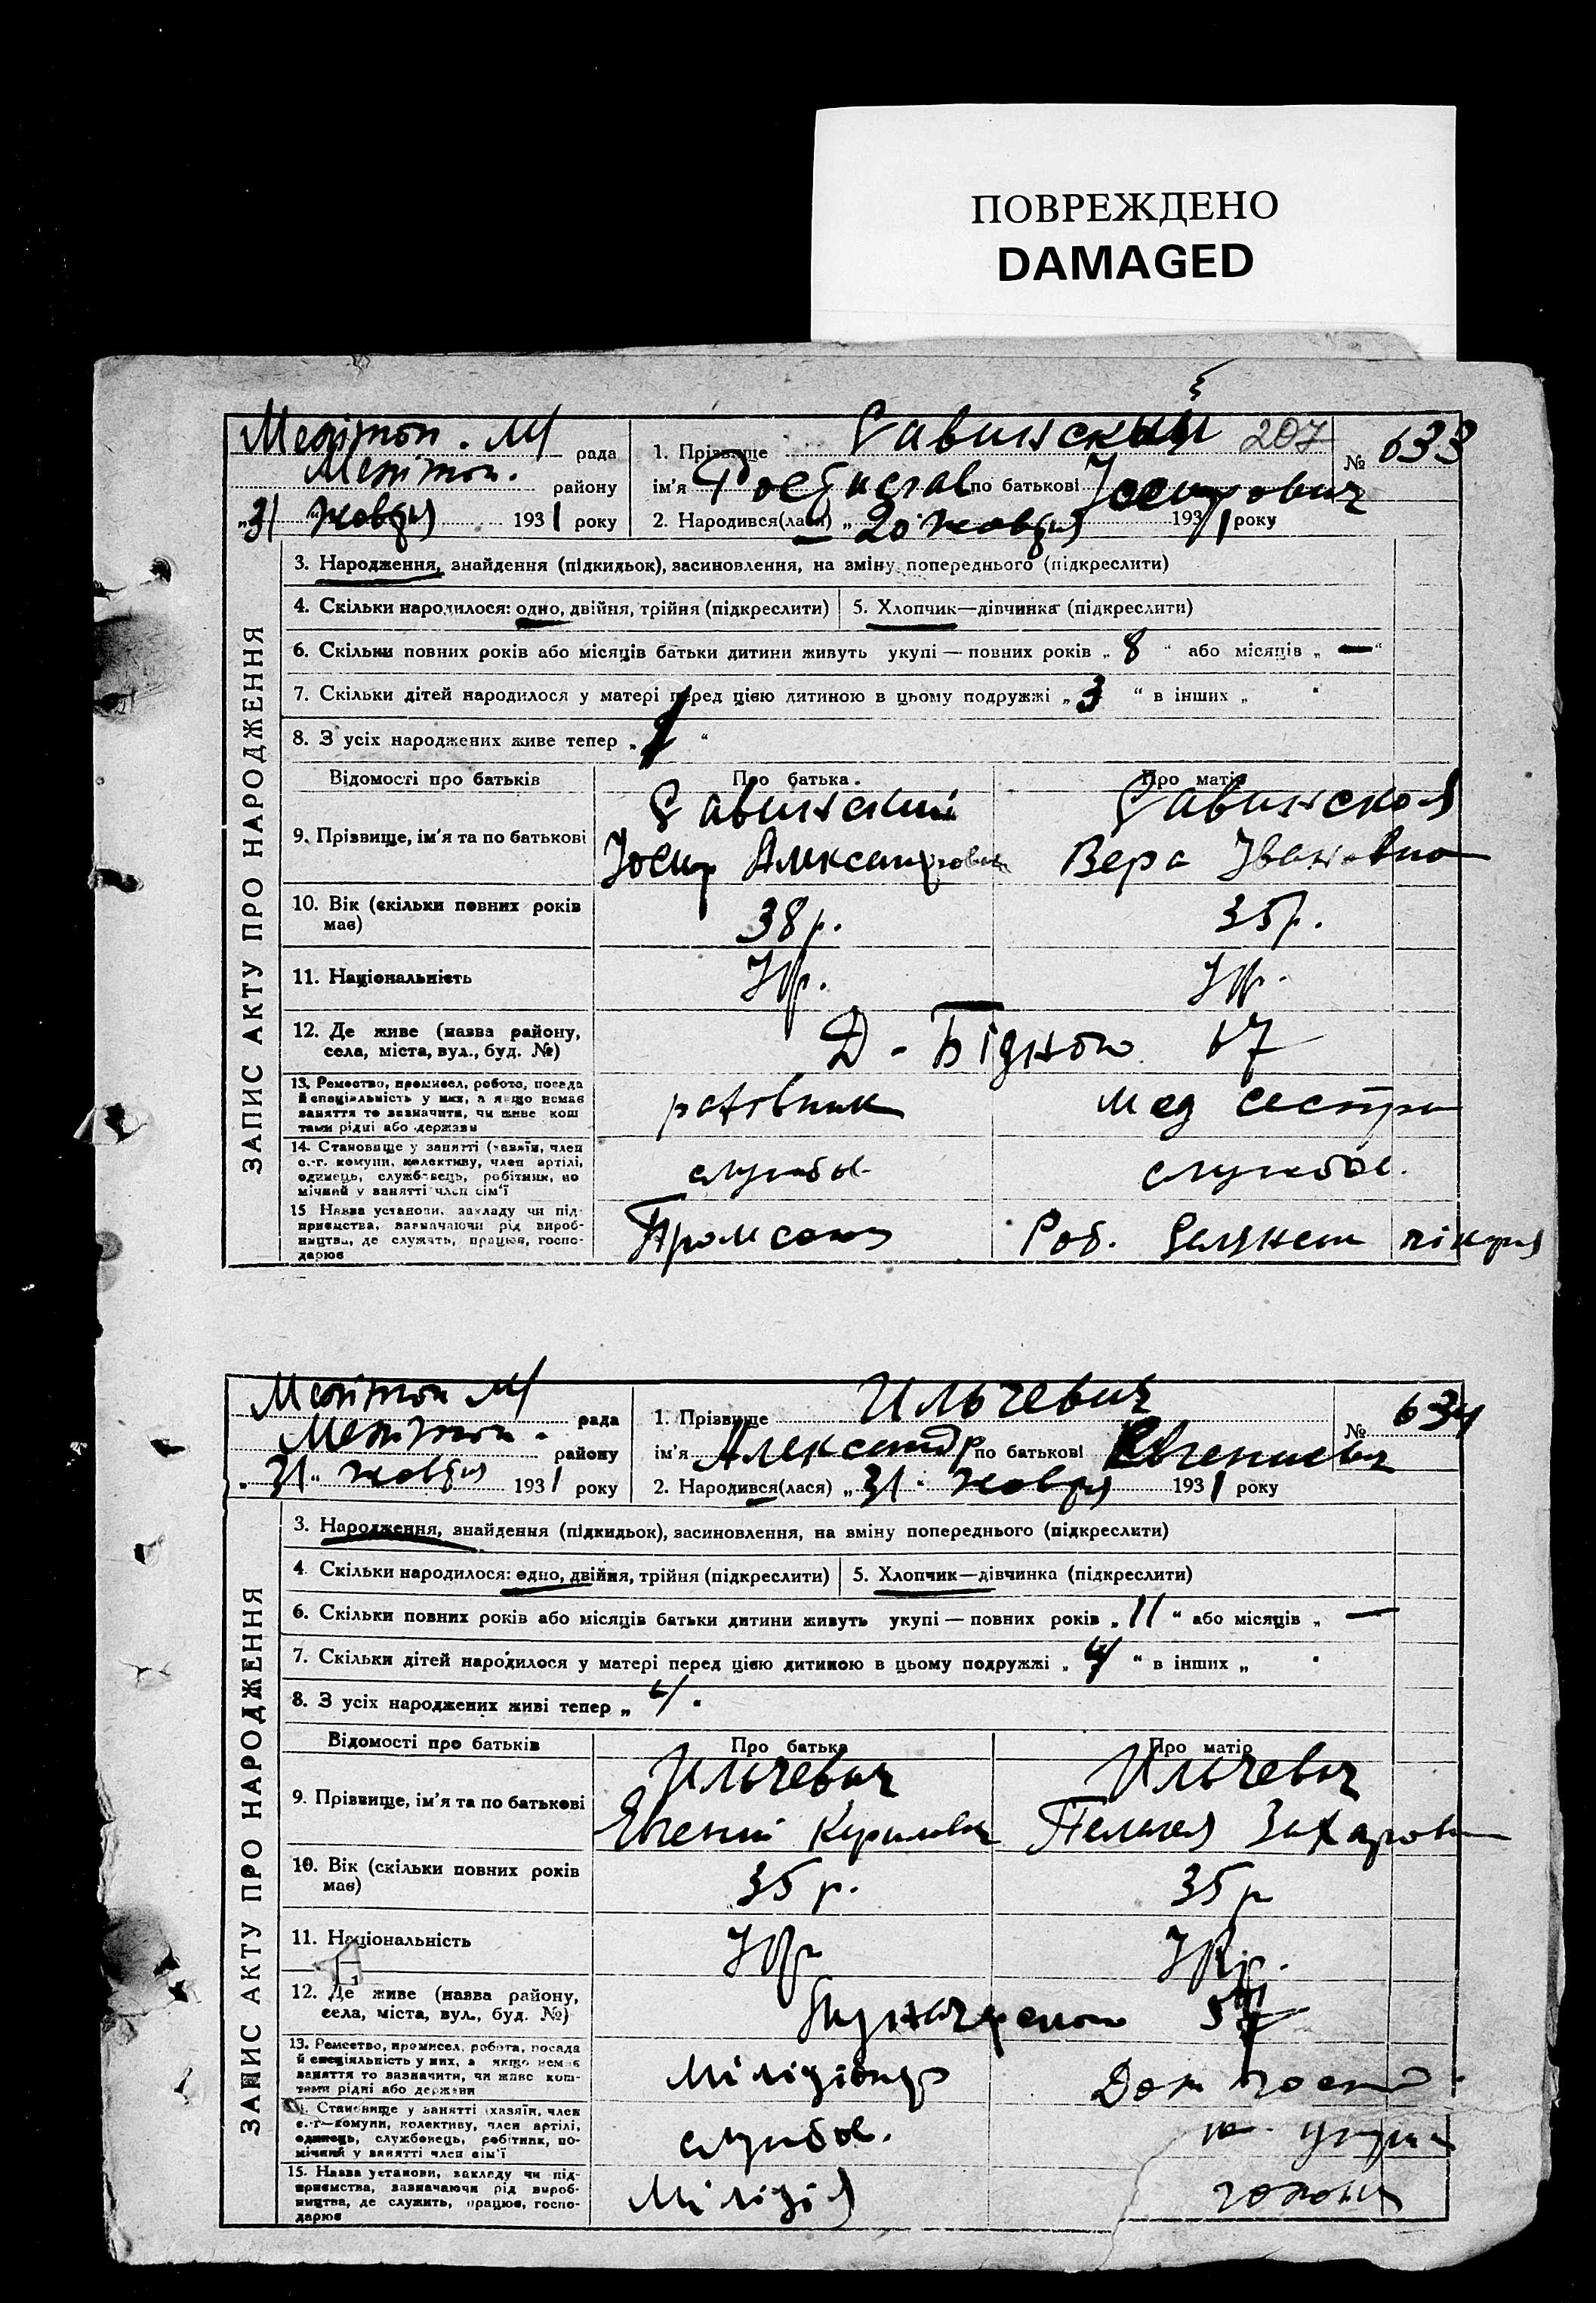 ПОВРЕЖДЕНО
DAMAGED
Мелітоп. М/ рада
Мелітоп. району
„31“ жовтня 1931 року
1. Прізвище Савинский 207
№ 633
ім'я Ростислав по батькові Иосипович
2. Народився(лася) „20“ жовтня 1931 року
ЗАПИС АКТУ ПРО НАРОДЖЕННЯ
3. Народження, знайдення (підкидьок), засиновлення, на зміну попереднього (підкреслити)
4. Скільки народилося: одно, двійня, трійня (підкреслити) 5. Хлопчик—дівчинка (підкреслити)
6. Скільки повних років або місяців батьки дитини живуть укупі — повних років „8“ або місяців „—“
7. Скільки дітей народилося у матері перед цією дитиною в цьому подружжі „3“ в інших „
8. З усіх народжених живе тепер „ “
Відомості про батьків Про батька Про матір
9. Прізвище, ім'я та по батькові
Савинский
Савинская
Вера Івановна
10. Вік (скільки повних років має) 38 р. 35 р.
11. Національність Укр. Укр.
12. Де живе (назва району, села, міста, вул., буд. №) Д - Бідного 17
13. Ремество, промисел, робота, посада
й спеціяльність у них, а якщо немає
заняття то зазначити, чи живе кош
тами рідні або держави
Мед сестра
14. Становище у занятті (хазяїн, член
с.-г. комуни, колективу, член артілі,
одинець, службовець, робітник, по
мічний у занятті член сім'ї
службов. службов.
15 Назва установи, закладу чи під-
приємства, зазначаючи рід вироб-
ництва, де служить, працює, госпо-
дарює
Промсоюз
Роб.
Мелітоп М/ рада
Мелітоп. району
„31“ жовтня 1931 року
1. Прізвище Ильчевич
№ 634
ім'я Александр по батькові Евгениевич
2. Народився(лася) „31“ жовтня 1931 року
ЗАПИС АКТУ ПРО НАРОДЖЕННЯ
3. Народження, знайдення (підкидьок), засиновлення, на зміну попереднього (підкреслити)
4. Скільки народилося: одно, двійня, трійня (підкреслити) 5. Хлопчик—дівчинка (підкреслити)
6. Скільки повних років або місяців батьки дитини живуть укупі — повних років „11“ або місяців „ —
7. Скільки дітей народилося у матері перед цією дитиною в цьому подружжі „4“ в інших „
8. З усіх народжених живі тепер „4“
Відомості про батьків Про батька Про матір
9. Прізвище, ім'я та по батькові
Ильчевич
Евгений Кирилович
Ильчевич
Пелагея Захаровна
10. Вік (скільки повних років має) 35 р. 35 р
11. Національність Укр Укр.
12. Де живе (назва району, села, міста, вул., буд. №)
13. Ремество, промисел, робота, посада
й спеціяльність у них, а якщо немає
заняття то зазначити, чи живе кош-
тами рідні або держави
Міліціонер
Дом госпо
14. Становище у занятті (хазяїн, член
с.-г—комуни, колективу, член артілі,
одинець, службовець, робітник, по-
мічний у занятті член сім'ї
службов.
15. Назва установи, закладу чи під-
приємства, зазначаючи рід вироб-
ництва, де служить, працює, госпо-
дарює
Міліція